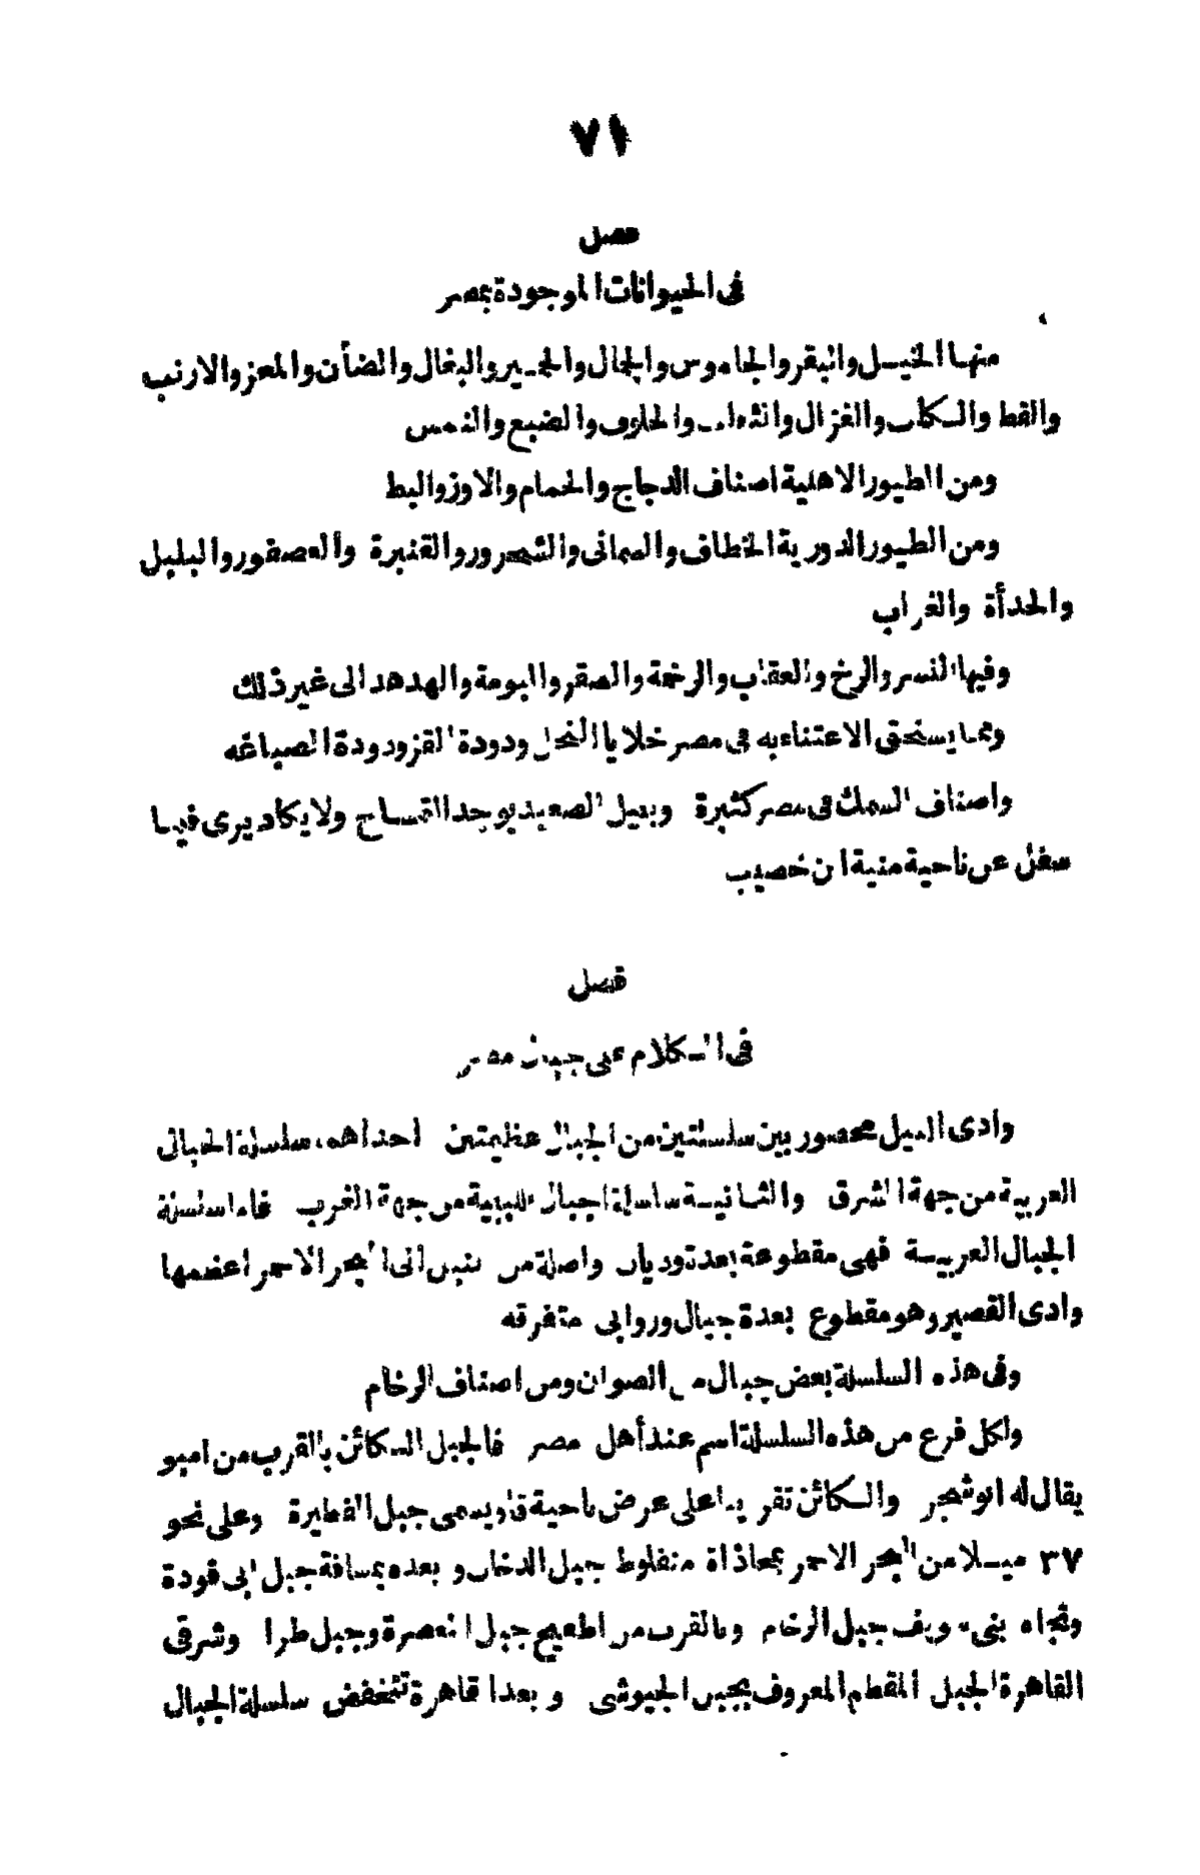 ٧١
فصل
فى الحيوانات الموجودة بمصر
منها الخيل والبقر والجاموس والجمال والحمير والبغال والضأن والمعز والارنب
والقط والكلب والغزال والثعلب والحلوف والضبع والنمس
ومن الطيور الاهلية اصناف الدجاج والحمام والاوز والبط
ومن الطيور الدورية الخطاف والسمانى والشحرور والقنبرة والعصفور والبلبل
والحدأة والغراب
وفيها النسر والرخ والعقاب والرخمة والصقر والبومة والهدهد الى غير ذلك
ومما يستحق الاعتناء به فى مصر خلايا النحل ودودة القز ودودة الصباغه
واصناف السمك فى مصر كثيرة وبنيل الصعيد يوجد التمساح ولا يكاد يرى فيما
سفل عن ناحية منية ابن خصيب
فصل
فى الكلام على جبال مصر
وادى النيل محصور بين سلسلتين من الجبال عظيمتين احداهما سلسلة الجبال
العربية من جهة الشرق والثانية سلسلة جبال الليبية من جهة الغرب فاما سلسلة
الجبال العربية فهى مقطوعة بعدة وديان واصلة من النيل الى البحر الاحمر اعضمها
وادى القصير وهو مقطوع بعدة جبال وروابى متفرقه
وفى هذه السلسلة بعض جبال من الصوان ومن اصناف الرخام
ولكل فرع من هذه السلسلة اسم عند أهل مصر فالجبل الكائن بالقرب من امبو
يقال له ابو شجر والكائن تقريبا على عرض ناحية قاو يسمى جبل الفطيرة وعلى نحو
٣٧ ميلا من البحر الاحمر بمحاذاة منفلوط جبل الدخان وبعده بمسافة جبل ابى فودة
وتجاه بنى سويف جبل الرخام وبالقرب من اطفيح جبل المعصرة وجبل طرا وشرقى
القاهرة الجبل المقطم المعروف بجبل الجيوشى وبعد القاهرة تنخفض سلسلة الجبال